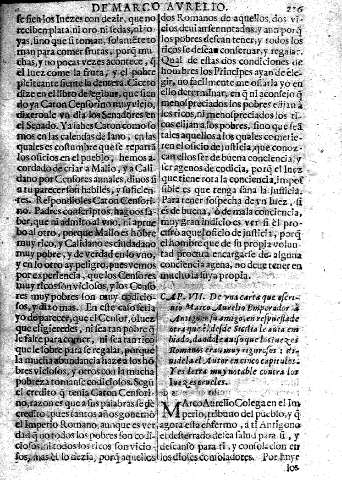 DE MARCO AVRELIO. 226
se fien los Iuezes con dezir, que no
reciben plata, ni oro, ni sedas, ni jo
yas, sino que si toman, solamente to
man para comer frutas, porq̃ mu-
chas, y no pocas vezes acontece, q̃
el Iuez come la fruta, y el pobre
pleiteante siente la dentera. Cicero
dize en el libro de legibus, que siẽn
do ya Caton Censorino muy viejo,
dixeronle vn dia los Senadores en
el Senado. Ya sabes Caton como so
mos en las calendas de Iano, en las
quales es costumbre que se repartã
los oficios en el pueblo, hemos a-
cordado de criar a Malio, y a Cali
dano por Censores annales, dinos si
a tu parecer son habiles, y suficien-
tes. Respondioles Caton Censorino.
Padres conscriptos, hagoos sa-
ber, que ni admito al vno, ni aprue
bo al otro, porque Malio es hõbre
muy rico, y Calidano es ciudadano
muy pobre, y de verdad en lo vno,
y en lo otro ay peligro, pues vemos
por experiencia, que los Censores
muy ricos son viciosos, y los Censo
res muy pobres son muy codicio-
sos, y dixo mas. En este caso seria
yo de parecer, que el Censor, ò Iuez
que eligieredes, ni sea tan pobre q̃
le falte para comer, ni sea tan rico
que le sobre para se regalar, porque
la mucha abundancia haze a los hõ
bres viciosos, y otros con la mucha
pobreza tornanse codiciosos. Segũ
el credito q̃ tenia Caton Censori-
no, razon es que a sus palabras se dè
credito, pues tantos años gouernò
el Imperio Romano, aunque es ver
dad, q̃ no todos los pobres son codi
ciosos, ni todos los ricos son vicio-
sos, mas èl lo dezia, porq̃ aquellos
dos Romanos de aquellos dos vi-
cios deuian ser notados, y aun porq̃
los pobres dessean tener, y todos los
ricos se dessean conseruar, y regalar.
Qual de estas dos condiciones de
hombres los Principes ayan de ele-
gir, no facilmente me osaria yo en
ello determinar, en q̃ ni aconsejo q̃
menospreciados los pobres elijan à
los ricos, ni menospreciados los ri-
cos elijan a los pobres, sino que se a
tales aquellos a los quales comete-
ren el oficio de justicia, que conoz-
can ellos ser de buena conciencia, y
ser agenos de codicia, porq̃ el Iuez
que tiene rota la conciencia, impos
sible es que tenga sana la justicia.
Para tener sospecha de vn Iuez, si
es de buena, ò de mala conciencia,
muy gran indicio es ver si èl pro-
curò aquel oficio de justicia, porq̃
el hombre que de su propia volun-
tad procura encargarse de alguna
conciencia agena, no deue tener en
mucho la suya propia.
CAP. VII. De vna carta que escri-
uiò Marco Aurelio Emperador à
Antigono su amigo, en respuesta de
otra que èl desde Sicilia le auia em
biado, da
Romanos eran muy rigurosos: di-
uidela el Autor en cinco capitulos.
Y es letra muy notable contra los
Iuezes crueles.
MArco Aurelio Colega en el Im
perio, tribuno del pueblo, y q̃
agora està enfermo, a ti Antigono
el desterrado dessea salud para ti, y
descanso para si, y consolacion en
los dioses consoladores. Por huye
los